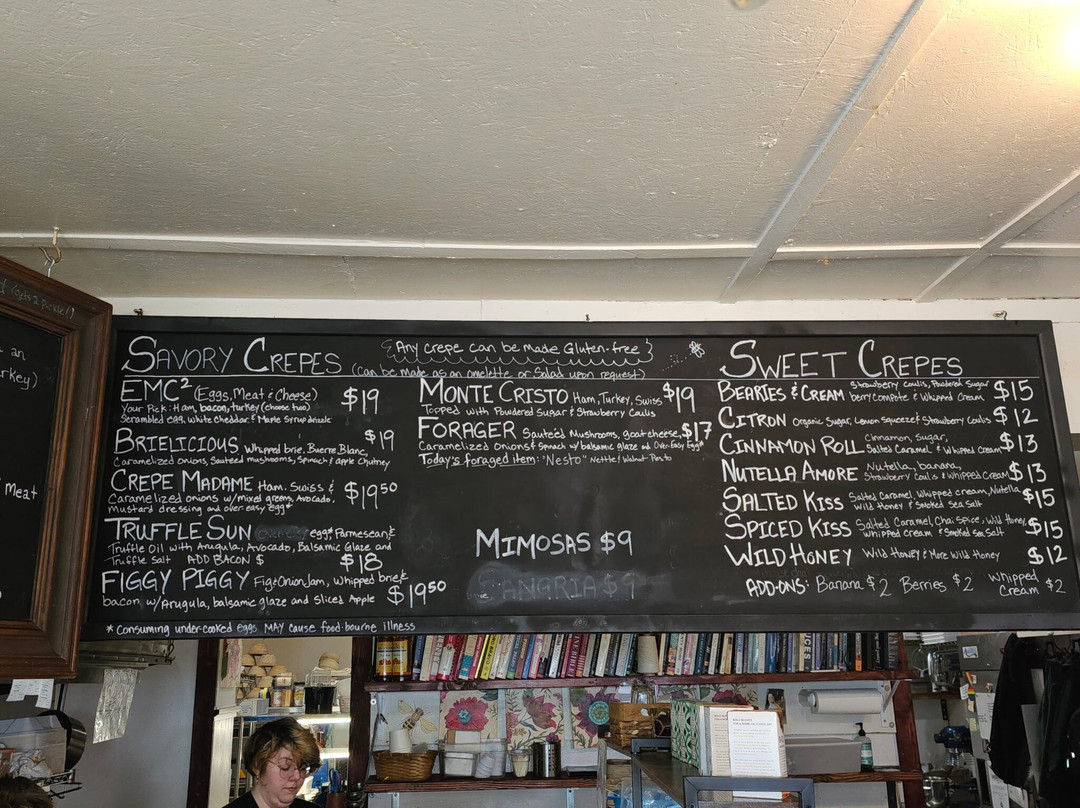 Gets a Pickle!)
an
rkey)
Meat
SAVORY CREPES
Any crepe can be made Gluten-free
(can be made as an omelette or Salad upon request)
EMC² (Eggs, Meat & Cheese) $19
Your Pick: Ham, bacon, turkey (choose two)
Scrambled egg, white Cheddar & Maple Syrup drizzle
BRIELICIOUS Whipped brie, Buerre Blanc, $19
Caramelized onions, Sauteéd mushrooms, Spinach & apple Chutney
CREPE MADAME Ham, Swiss & $19⁵⁰
Caramelized onions w/mixed greens, Avocado,
Mustard dressing and over easy egg*
TRUFFLE SUN over-easy egg*, Parmesean, &
Truffle Oil with Arugula, Avocado, Balsamic Glaze and
Truffle Salt ADD BACON $ $18
FIGGY PIGGY Fig & Onion Jam, Whipped brie &
bacon w/Arugula, balsamic glaze and Sliced Apple $19⁵⁰
* Consuming under-cooked eggs MAY cause food-bourne illness
MONTE CRISTO Ham, Turkey, Swiss $19
Topped with Powdered Sugar & Strawberry Caulis
FORAGER Sauteéd Mushrooms, goat cheese, $17
Caramelized Onions & Spinach w/ balsamic glaze and Over Easy Egg*
Today's foraged item: "Nesto" Nettle & Walnut Pesto
MIMOSAS $9
SANGRIA $9
SWEET CREPES
BEARIES & CREAM Strawberry Caulis, Powdered Sugar $15
berry Compote & Whipped Cream
CITRON Organic Sugar, Lemon squeeze & Strawberry Caulis $12
CINNAMON ROLL Cinnamon, Sugar, $13
Salted Caramel & Whipped Cream
NUTELLA AMORE Nutella, banana, $13
Strawberry Caulis & Whipped Cream
SALTED KISS Salted Caramel, Whipped cream, Nutella $15
Wild Honey & Smoked Sea Salt
SPICED KISS Salted Caramel, Chai Spice, Wild Honey, $15
whipped cream & Smoked Sea Salt
WILD HONEY Wild Honey & More Wild Honey $12
ADD-ONS: Banana $2 Berries $2 Whipped Cream $2